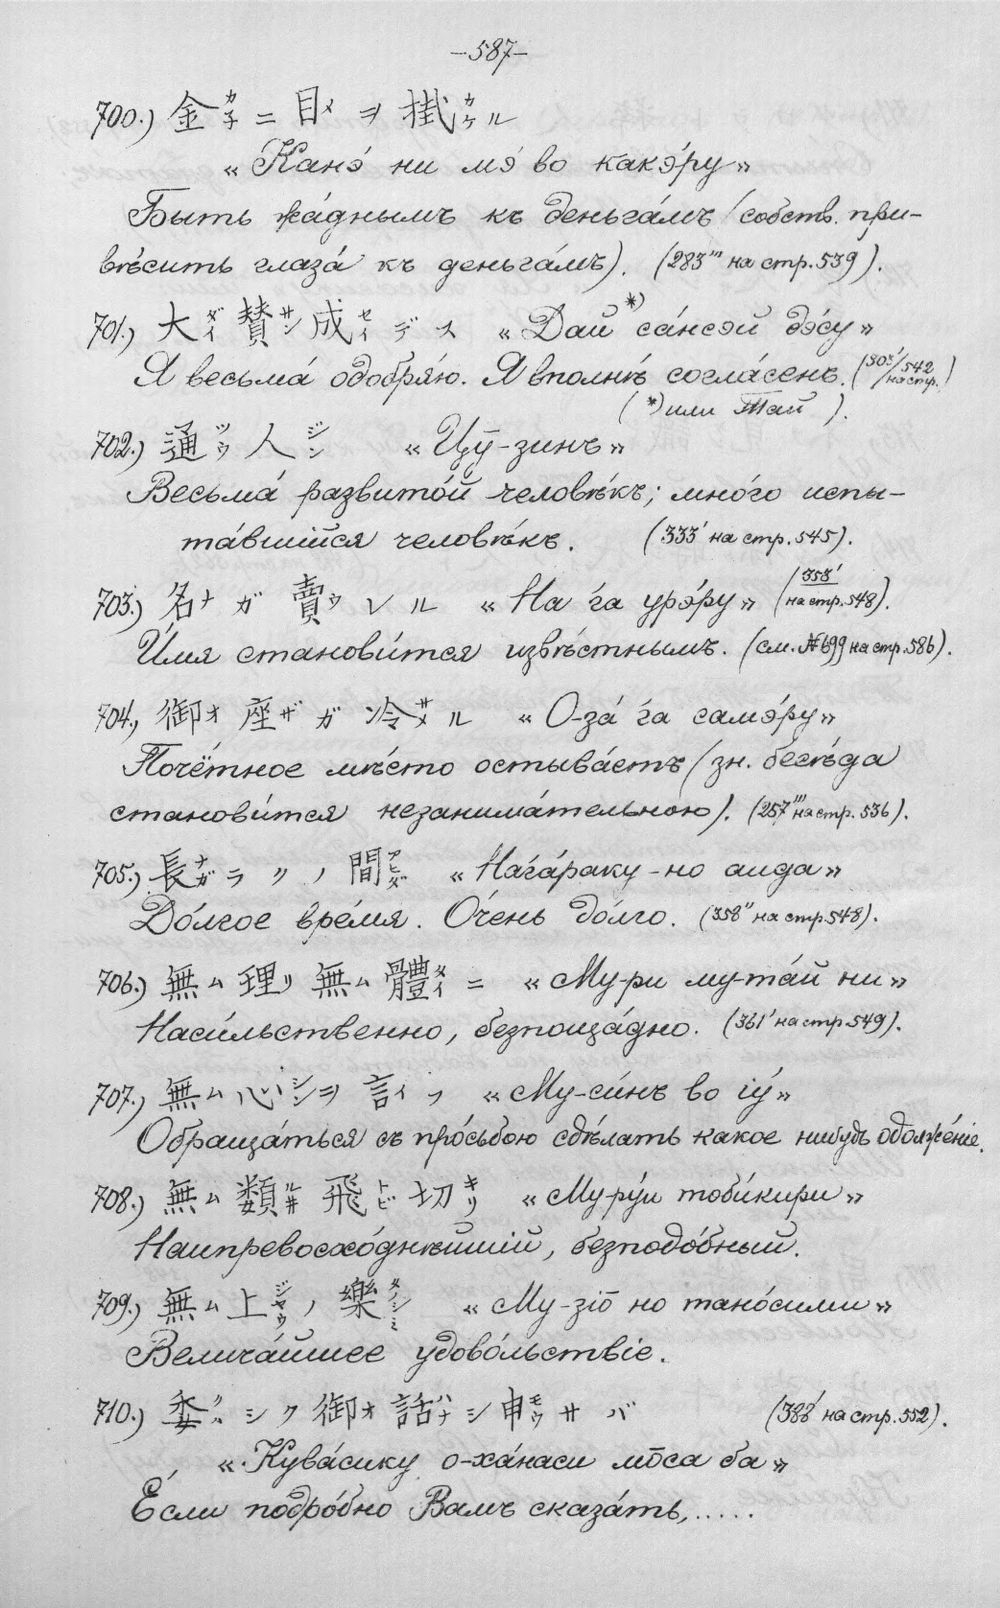 –587–
700.) 金カ子ニ 目メ ヲ 掛カケル
«Канэ́ ни мэ́ во какэ́ру»
Быть жа́днымъ къ деньга́мъ (собств. при-
вѣсить глаза́ къ деньга́мъ). (283''' на стр. 539).
701.) 大ダイ 賛サン 成セイ デス «Дай *) са́нсэй дэ́су»
Я весьма́ одобря́ю. Я вполнѣ́ согла́сенъ. (303'/542 на стр.)
( *) или Тай ).
702.) 通ツウ 人ジン «Цӯ-зинъ»
Весьма́ развито́й человѣ́къ; мно́го испы-
та́вшійся человѣ́къ. (333' на стр. 545).
703.) 名ナ ガ 賣ウレル «На га урэ́ру» (353' на стр. 548).
И́мя станови́тся извѣ́стнымъ. (см. № 699 на стр. 586).
704.) 御オ 座ザ ガ 冷サメル «О-за́ га самэ́ру»
Почётное мѣ́сто остыва́етъ (зн. бесѣ́да
станови́тся незанима́тельною). (257''' на стр. 536).
705.) 長ナガラクノ 間アヒダ «Нага́раку-но аида»
До́лгое вре́мя. О́чень до́лго. (358'' на стр. 548).
706.) 無ム 理リ 無ム 體タイ ニ «Му-ри му-та́й ни»
Наси́льственно, безпоща́дно. (361' на стр. 549).
707.) 無ム 心シンヲ 言イフ «Му-си́нъ во іу́»
Обраща́ться съ про́сьбою сдѣ́лать какое нибудь одолже́ніе.
708.) 無ム 類ルヰ 飛トビ 切キリ «Му-ру́и тоби́кири»
Наипревосхо́днѣйшій, безподо́бный.
709.) 無ム 上ジヤウ ノ 樂タノシミ «Му-зіо̄ но тано́сими»
Велича́йшее удово́льствіе.
710.) 委クハシク 御オ 話ハナシ 申モウサバ (388' на стр. 552).
«Кува́сику о-ха́наси мо̄са ба»
Е́сли подро́бно Вамъ сказа́ть,.....